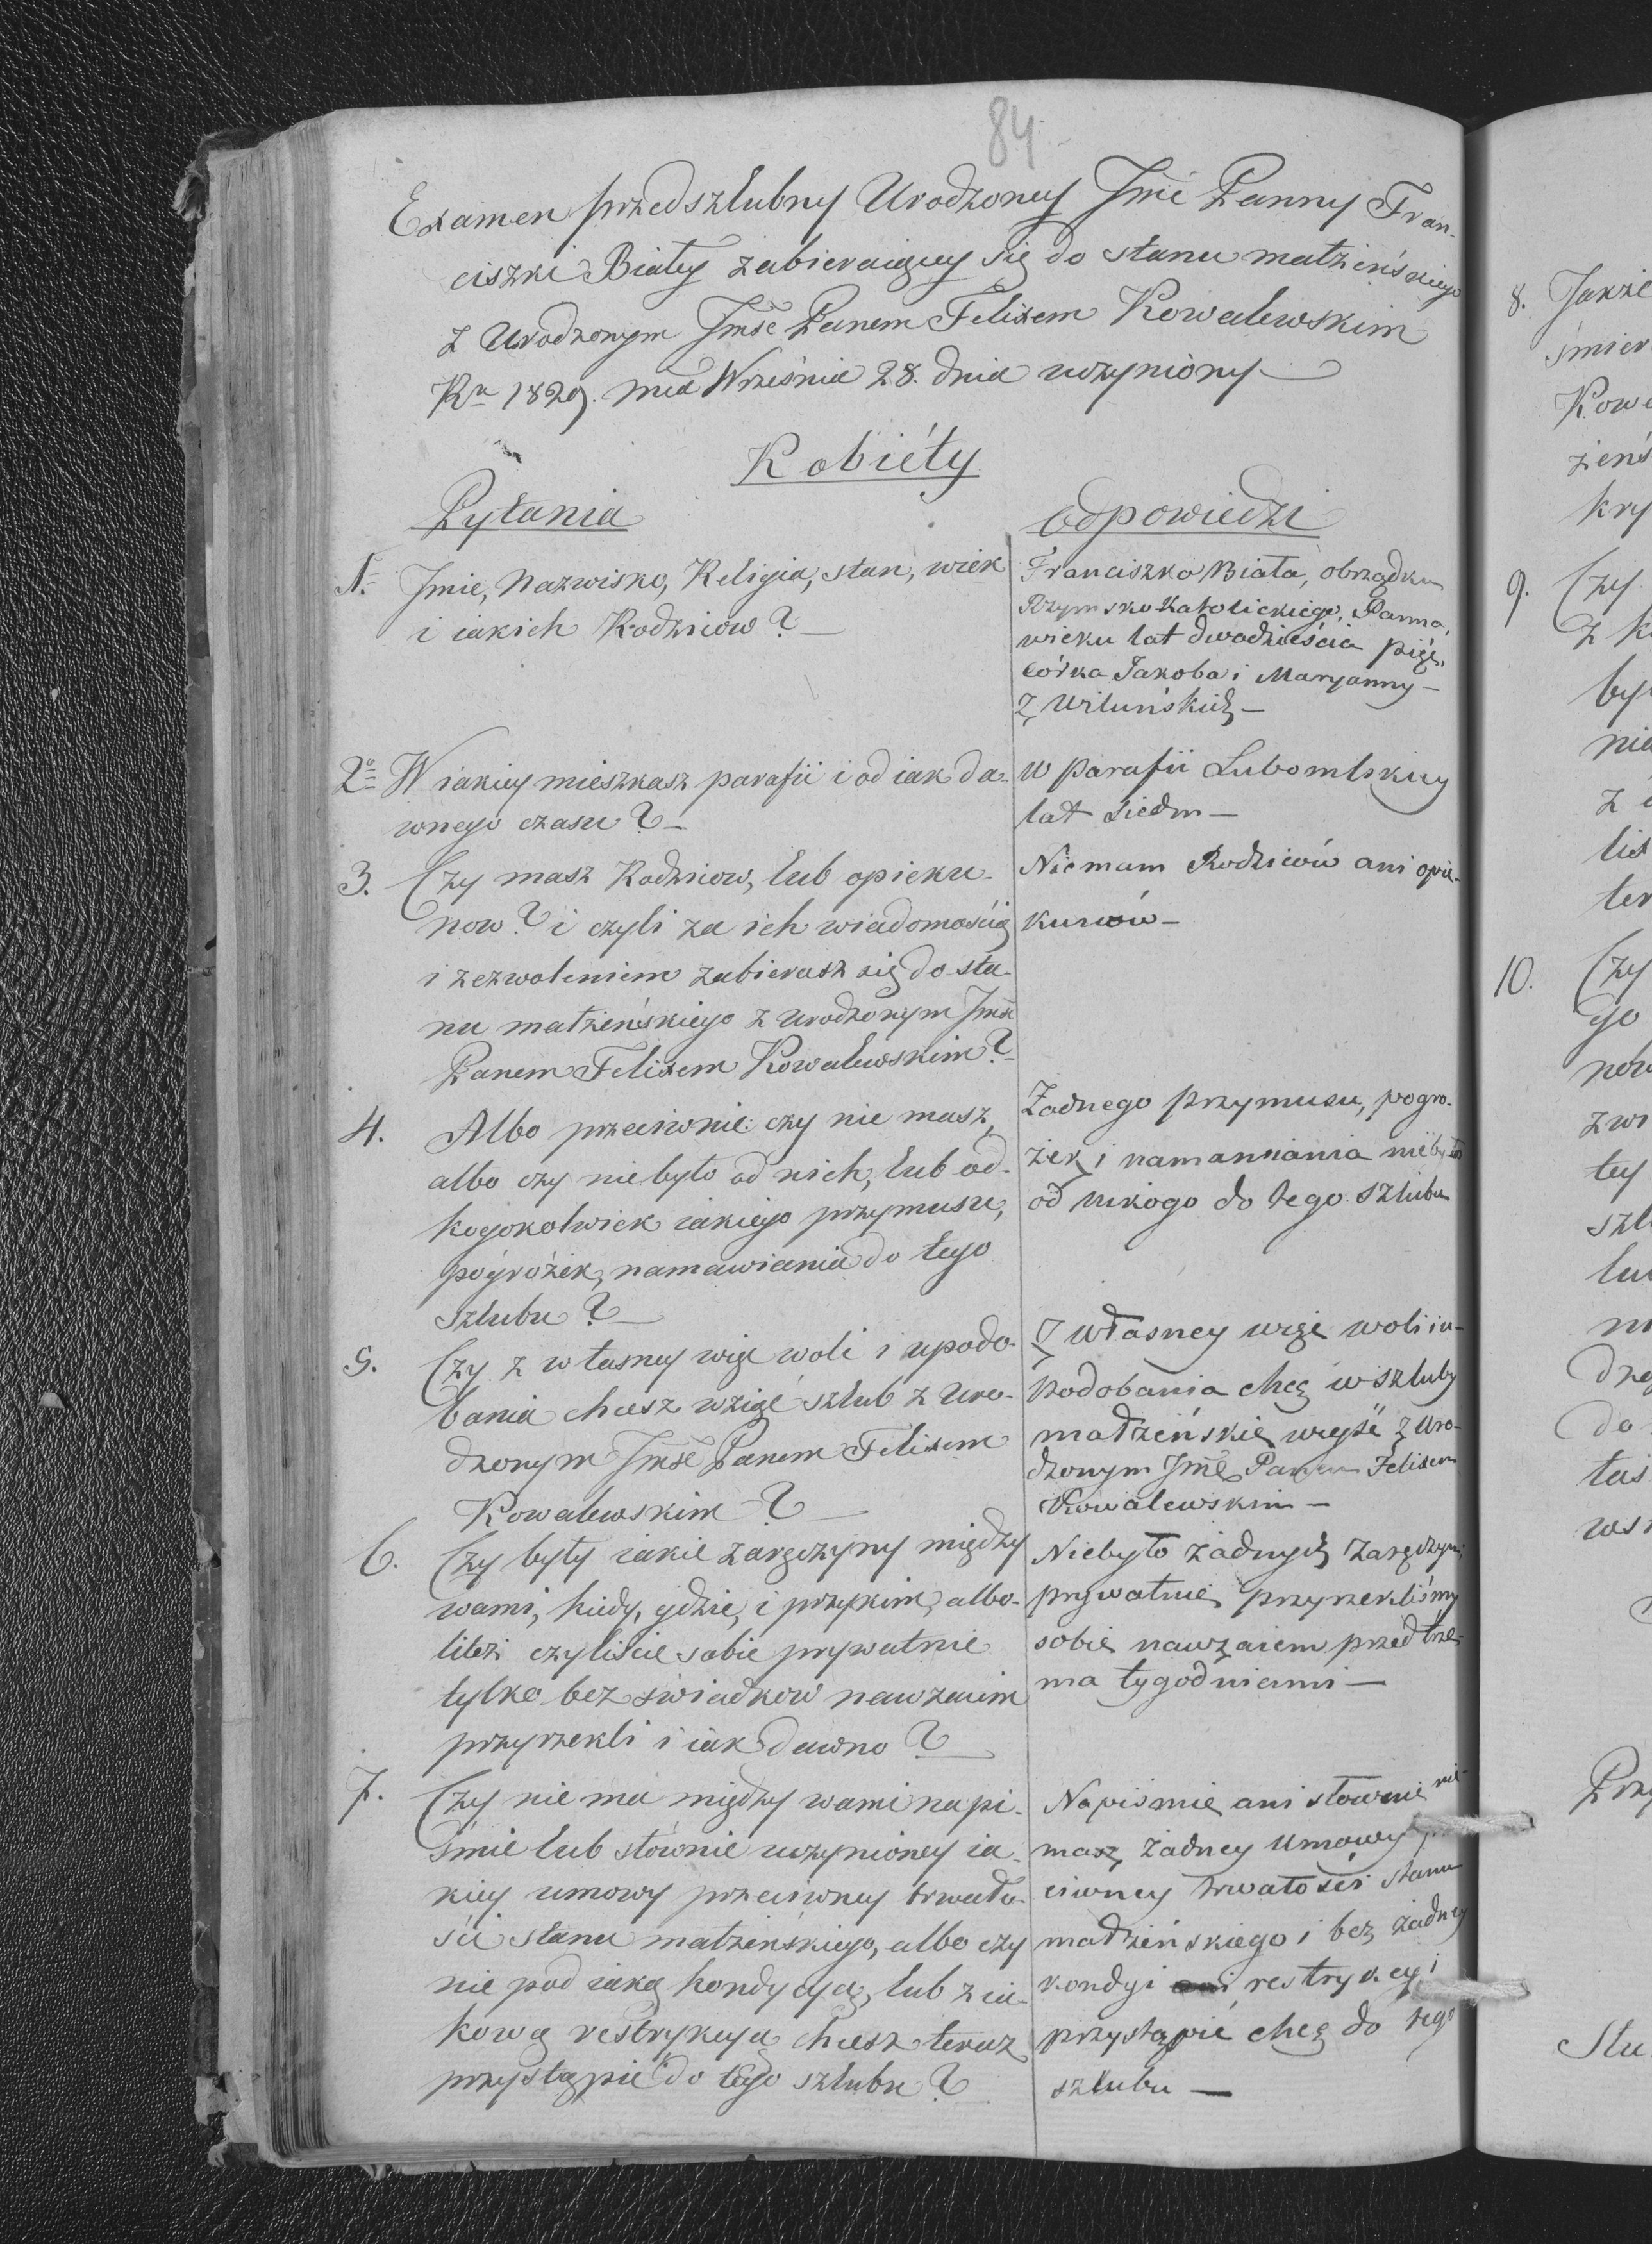 84
Examen przedszlubny Urodzoney Jmć Panny Fran-
ciszki Białey zabieraiącey się do stanu małżeńskiego
z Urodzonym Jmść Panem Felixem Kowalewskim
Ru 1829. mca Września 28. dnia uczyniony
Kobiéty
Pytania
odpowiedzi
1. Jmie, Nazwisko, Religia, stan, wiek
i iakich Rodziców?
Franciszka Biała, obrządku
Rzymsko Katolickiego, Panna,
wieku lat dwadzieścia pięć,
córka Jakoba i Maryanny
z
2o W iakiey mieszkasz parafii i od iak da-
wnego czasu?
w parafii Lubomlskiey
lat siedm
3. Czy masz Rodzicow, lub opieku-
now? i czyli za ich wiadomością
i zezwoleniem zabierasz się do sta-
nu małżeńskiego z urodzonym Jmść
Panem Felixem Kowalewskim?
Niemam Rodziców ani opie-
kunów
4. Albo przeciwnie czy nie masz,
albo czy niebyło od nich, lub od
kogokolwiek iakiego przymusu,
pogróżek, namawiania do tego
szlubu?
Żadnego przymusu, pogro-
żek i namawiania niebyło
od nikogo do tego szlubu
5. Czy z własney więc woli i upodo-
bania chcesz wziąć szlub z Uro-
dzonym Jmść Panem Felixem
Kowalewskim?
Z własney więc woli i u-
podobania chcę w szluby
małżeńskie wejść z Uro-
dzonym Jmć Panem Felixem
Kowalewskim
6. Czy były iakie zaręczyny między
wami, kiedy, gdzie, i przykim, albo-
liteż czyliście sobie prywatnie
tylko bez świadków nawzaiem
przyrzekli i iak dawno?
Niebyło żadnych zaręczyn,
prywatnie przyrzekliśmy
sobie nawzaiem przed trze-
ma tygodniami
7. Czy nie ma między wami napi-
śmie lub słównie uczynioney ia-
kiey umowy przeciwney trwało-
ści stanu małżeńskiego, albo czy
nie pod iaką kondycyą, lub z ia-
kową restrykcyą chcesz teraz
przystąpić do tego szlubu?
Na piśmie ani słownie nie-
masz żadney Umowy
ciwney trwałości stanu
małżeńskiego i bez żadney
kondyi restrykcyi
przystąpić chcę do tego
szlubu
8. Jakże
śmier
Kowa
żeńs
kry
9. Czy
z k
by
nia
z
lix
ter
10. Czy
go
now
zwi
tey
szl
lu
dze
do
taś
Prz
Stu